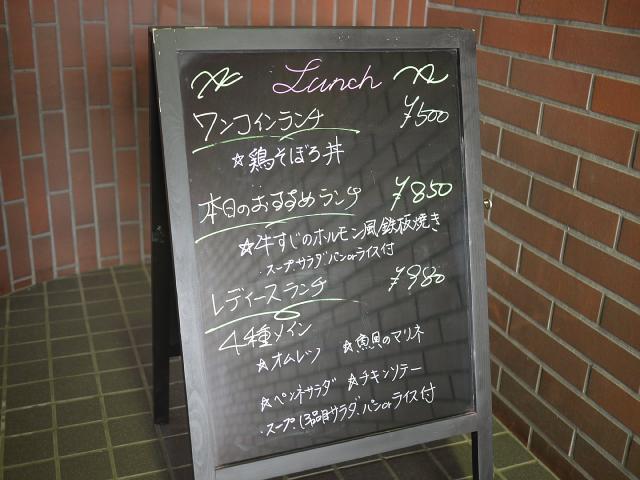 Lunch
ワンコインランチ ¥500
☆鶏そぼろ丼
本日のおすすめランチ ¥850
☆牛すじのホルモン風鉄板焼き
・スープ.サラダ.パンorライス付
レディースランチ ¥980
4種メイン
☆オムレツ ☆魚貝のマリネ
☆ペンネサラダ ☆チキンソテー
・スープ サラダ.パンorライス付